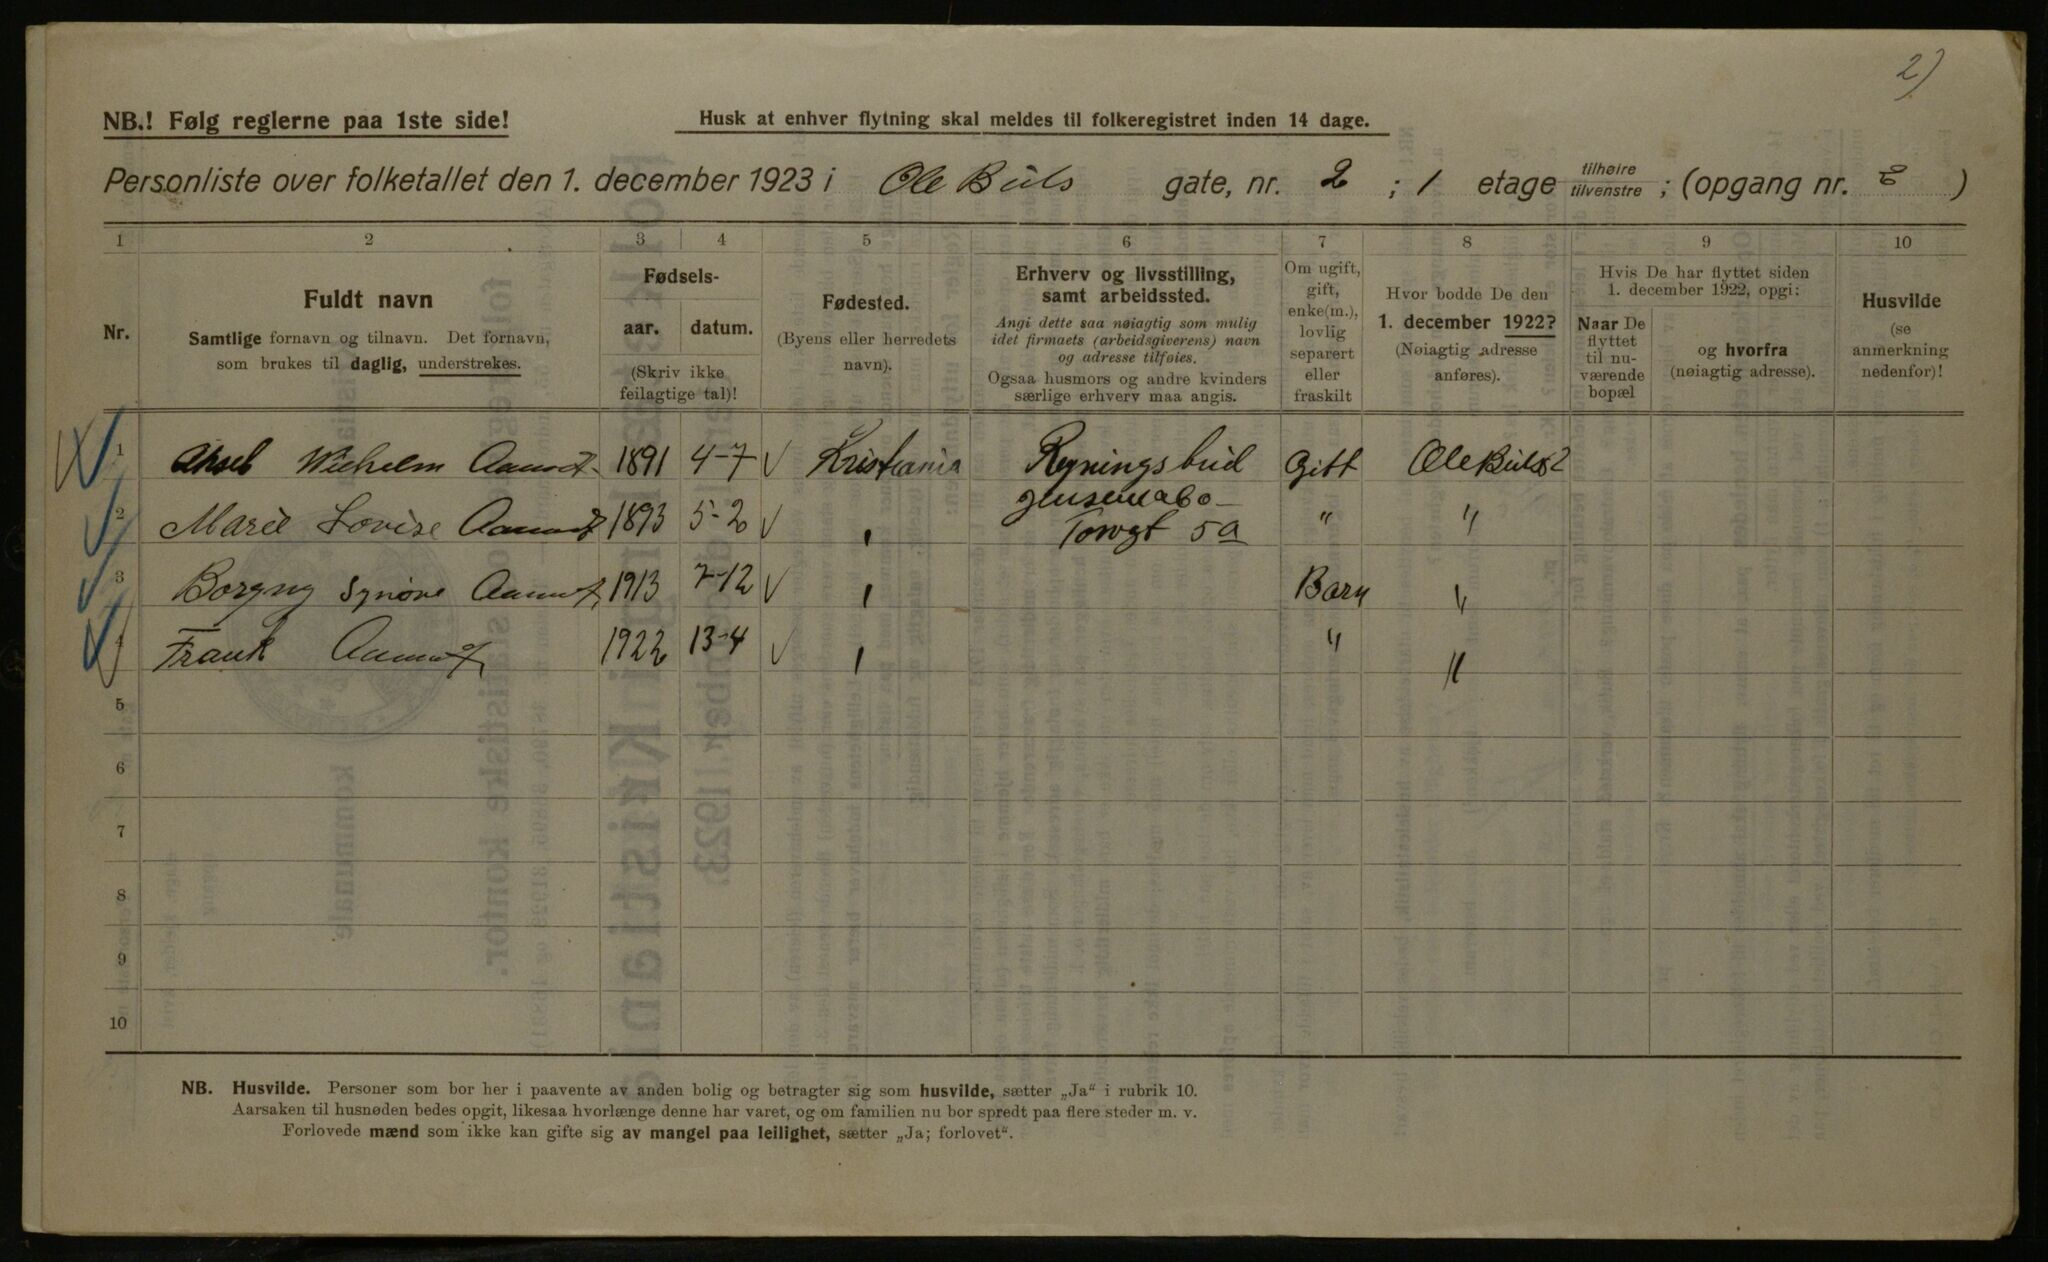 2)
NB.! Følg reglerne paa 1ste side!
Husk at enhver flytning skal meldes til folkeregistret inden 14 dage.
Personliste over folketallet den 1. december 1923 i Ole Buls gate, nr. 2 ; 1 etage tilhøire tilvenstre ; (opgang nr. )
1 2 3 4 5 6 7 8 9 10
Nr.
Fuldt navn
Samtlige fornavn og tilnavn. Det fornavn,
som brukes til daglig, understrekes.
Fødsels-
aar. datum.
(Skriv ikke
feilagtige tal)!
Fødested.
(Byens eller herredets
navn).
Erhverv og livsstilling,
samt arbeidssted.
Angi dette saa nøiagtig som mulig
idet firmaets (arbeidsgiverens) navn
og adresse tilføies.
Ogsaa husmors og andre kvinders
særlige erhverv maa angis.
Om ugift,
gift,
enke(m.),
lovlig
separert
eller
fraskilt
Hvor bodde De den
1. december 1922?
(Nøiagtig adresse
anføres).
Hvis De har flyttet siden
1. december 1922, opgi:
Naar De
flyttet
til nu-
værende
bopæl
og hvorfra
(nøiagtig adresse).
Husvilde
(se
anmerkning
nedenfor)!
1 Aksel Wilhelm 1891 4-7 Kristiania Regningsbud Gift Ole Buls 2
2 Marie Lovise 1893 5-2 " Torvgt 5a " "
3 Borgny Synøve 1913 7-12 " Barn "
4 Frank 1922 13-4 " " "
5
6
7
8
9
10
NB. Husvilde. Personer som bor her i paavente av anden bolig og betragter sig som husvilde, sætter „Ja“ i rubrik 10.
Aarsaken til husnøden bedes opgit, likesaa hvorlænge denne har varet, og om familien nu bor spredt paa flere steder m. v.
Forlovede mænd som ikke kan gifte sig av mangel paa leilighet, sætter „Ja; forlovet“.